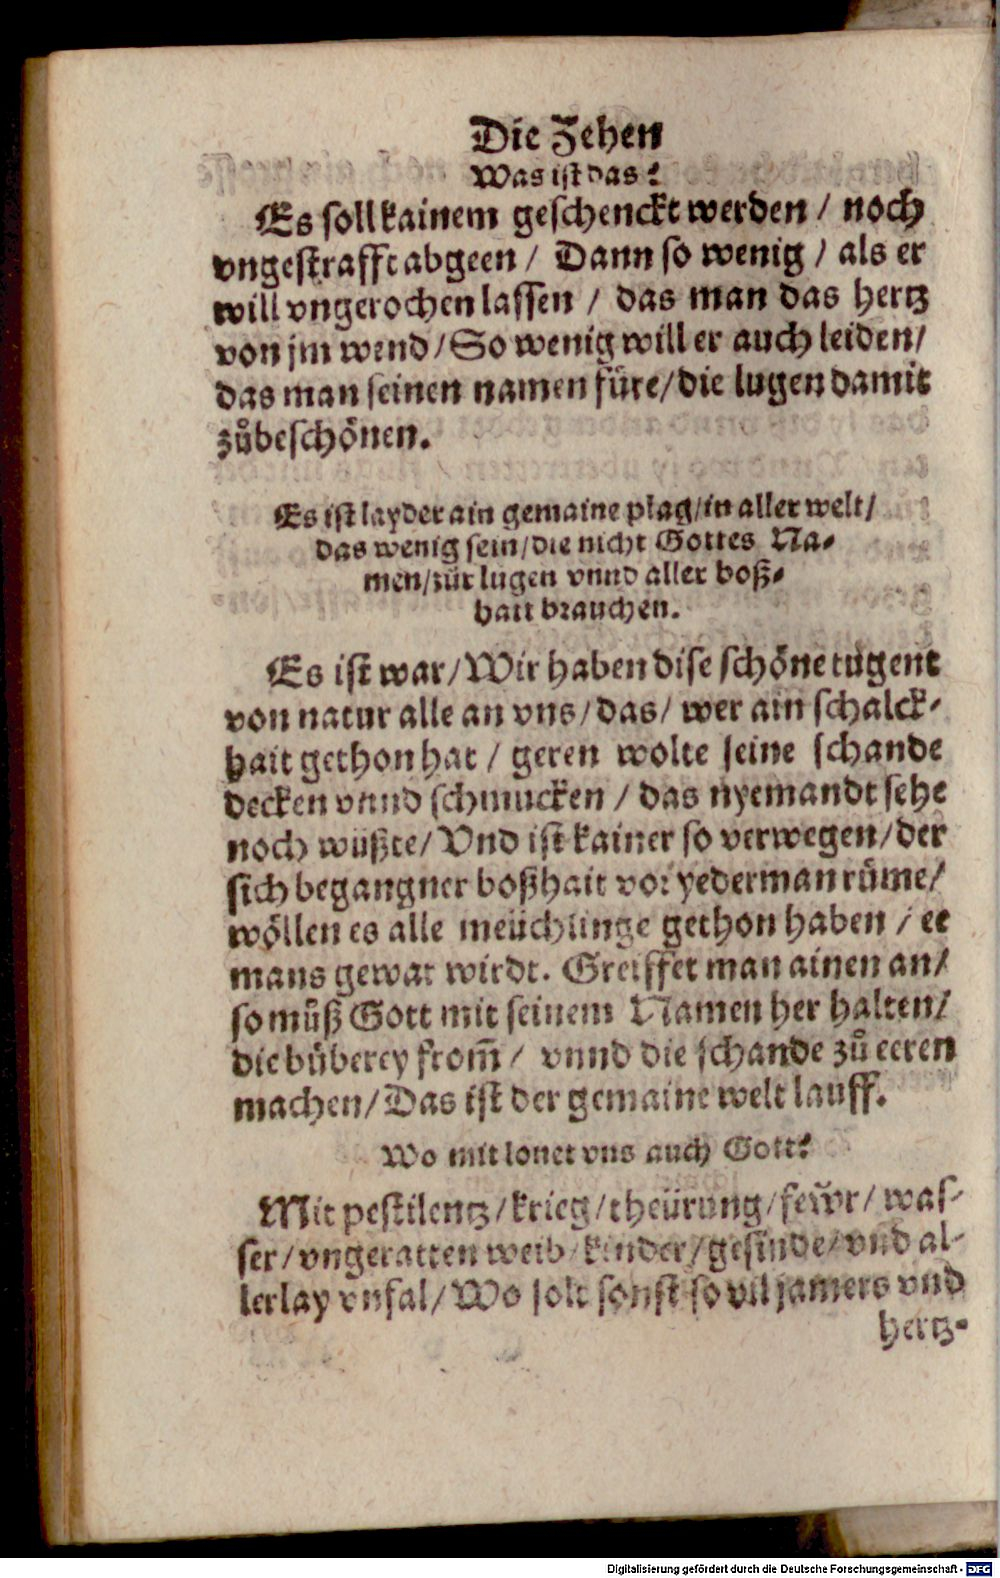 Die Zehen
Was ist das?
Es soll kainem geschenckt werden / noch
vngestrafft abgeen / Dann so wenig / als er
will vngerochen lassen / das man das hertz
von jm wend / So wenig will er auch leiden /
das man seinen namen füre / die lugen damit
zůbeschönen.
Es ist layder ain gemaine plag / in aller welt /
das wenig sein / die nicht Gottes Na-
men / zůr lugen vnnd aller boß-
hait brauchen.
Es ist war / Wir haben dise schöne tugent
von natur alle an vns / das / wer ain schalck-
hait gethon hat / geren wolte seine schande
decken vnnd schmucken / das nyemandt sehe
noch wüßte / Vnd ist kainer so verwegen / der
sich begangner boßhait vor yederman rüme /
wöllen es alle meüchlinge gethon haben / ee
mans gewar wirdt. Greiffet man ainen an /
so můß Gott mit seinem Namen her halten /
die büberey from̃ / vnnd die schande zů eeren
machen / Das ist der gemaine welt lauff.
Wo mit lonet vns auch Gott?
Mit pestilentz / krieg / theürung / fewr / was-
ser / vngeratten weib / kinder / gesinde / vnd al-
lerlay vnfal / Wo solt sonst so vil jamers vnd
hertz-
Digitalisierung gefördert durch die Deutsche Forschungsgemeinschaft - DFG